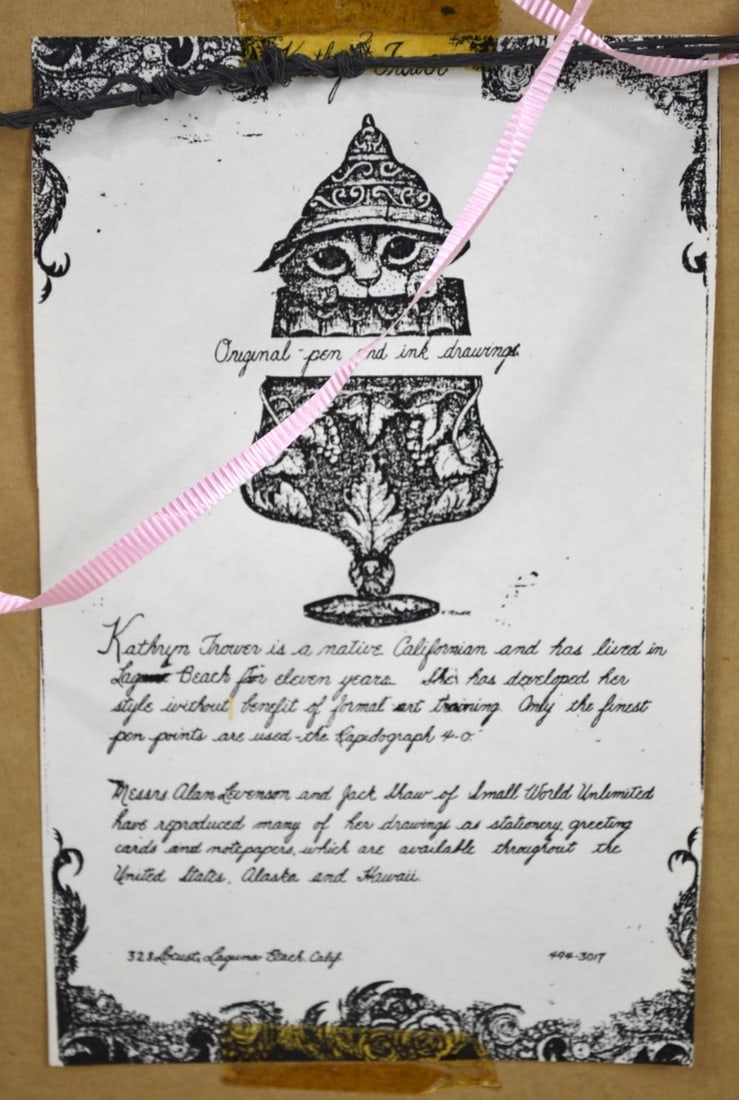 Kathryn Trower
Original pen and ink drawings.
Kathryn Trower is a native Californian and has lived in
Laguna Beach for eleven years. She has developed her
style without benefit of formal art training. Only the finest
pen points are used - the Rapidograph 4-0.
Messrs. Alan Levenson and Jack Shaw of Small World Unlimited
have reproduced many of her drawings as stationery, greeting
cards and notepapers, which are available throughout the
United States, Alaska and Hawaii.
328 Locust, Laguna Beach, Calif.
494-3017